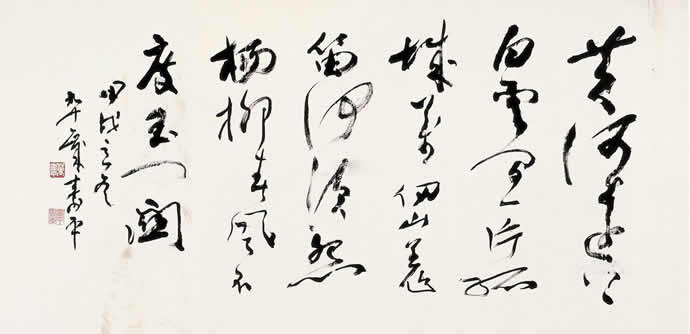 黄河遠上
白雲間一片孤
城萬仞山羌
笛何須怨
楊柳春風不
度玉門關
甲戌冬
九十歲壽平